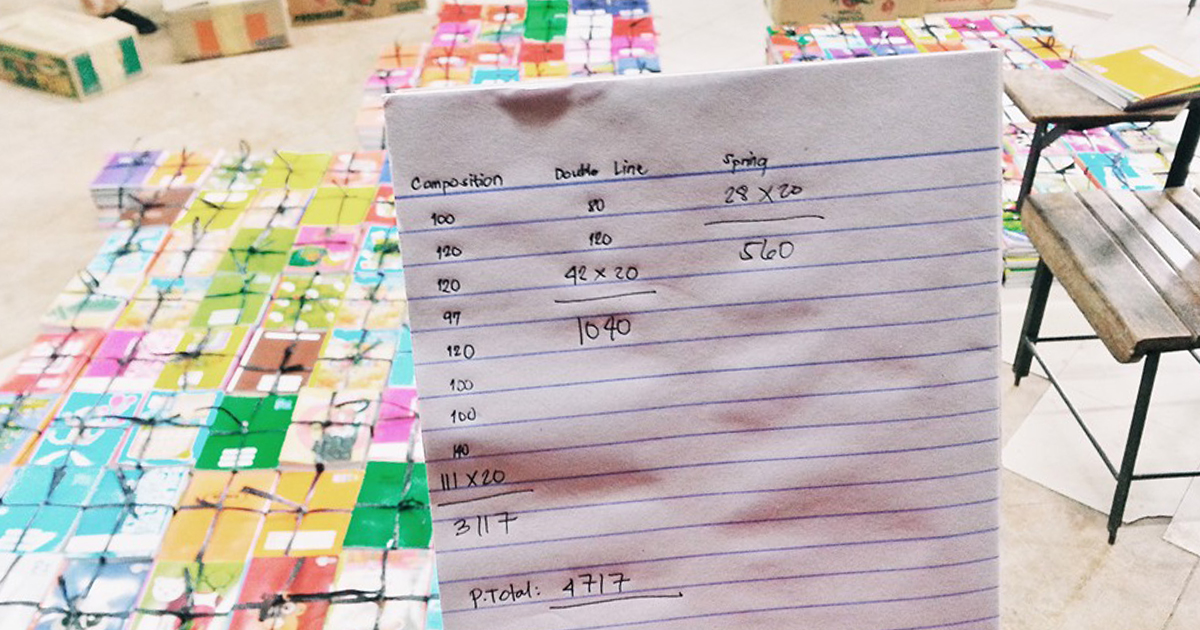 Composition
100
120
120
97
120
100
100
140
111 x 20
3117
Double Line
80
120
42 x 20
1040
Spring
28 x 20
560
P.Total: 4717